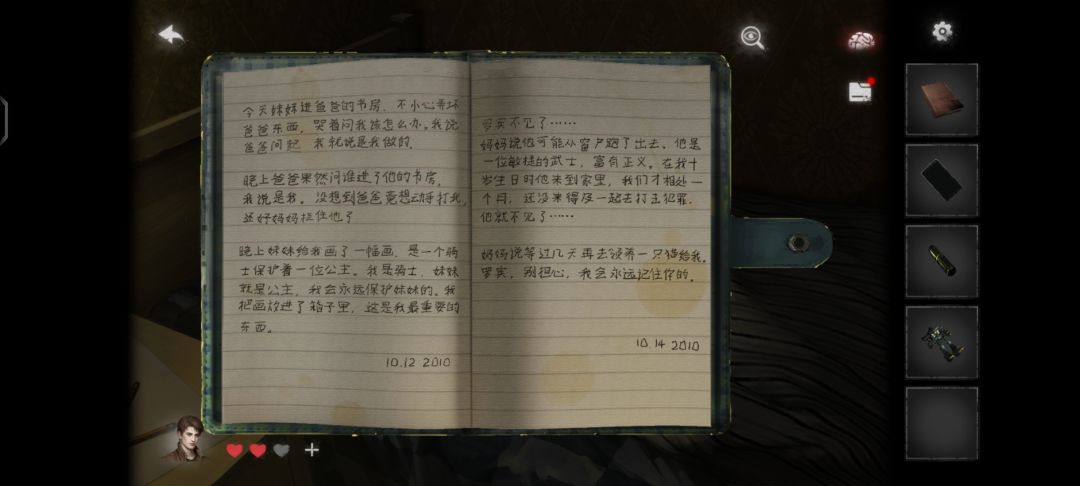 今天妹妹进爸爸的书房，不小心弄坏
爸爸东西，哭着问我该怎么办。我说
爸爸问起，我就说是我做的。
晚上爸爸果然问谁进了他的书房，
我说是我。没想到爸爸竟想动手打我，
还好妈妈拦住他了
晚上妹妹给我画了一幅画，是一个骑
士保护着一位公主。我是骑士，妹妹
就是公主，我会永远保护妹妹的。我
把画放进了箱子里，这是我最重要的
东西。
10.12 2010
罗宾不见了……
妈妈说他可能从窗户跑了出去。他是
一位敏捷的武士，富有正义。在我十
岁生日时他来到家里，我们才相处一
个月，还没来得及一起去打击犯罪，
他就不见了……
妈妈说等过几天再去领养一只猫给我。
罗宾，别担心，我会永远记住你的。
10.14 2010